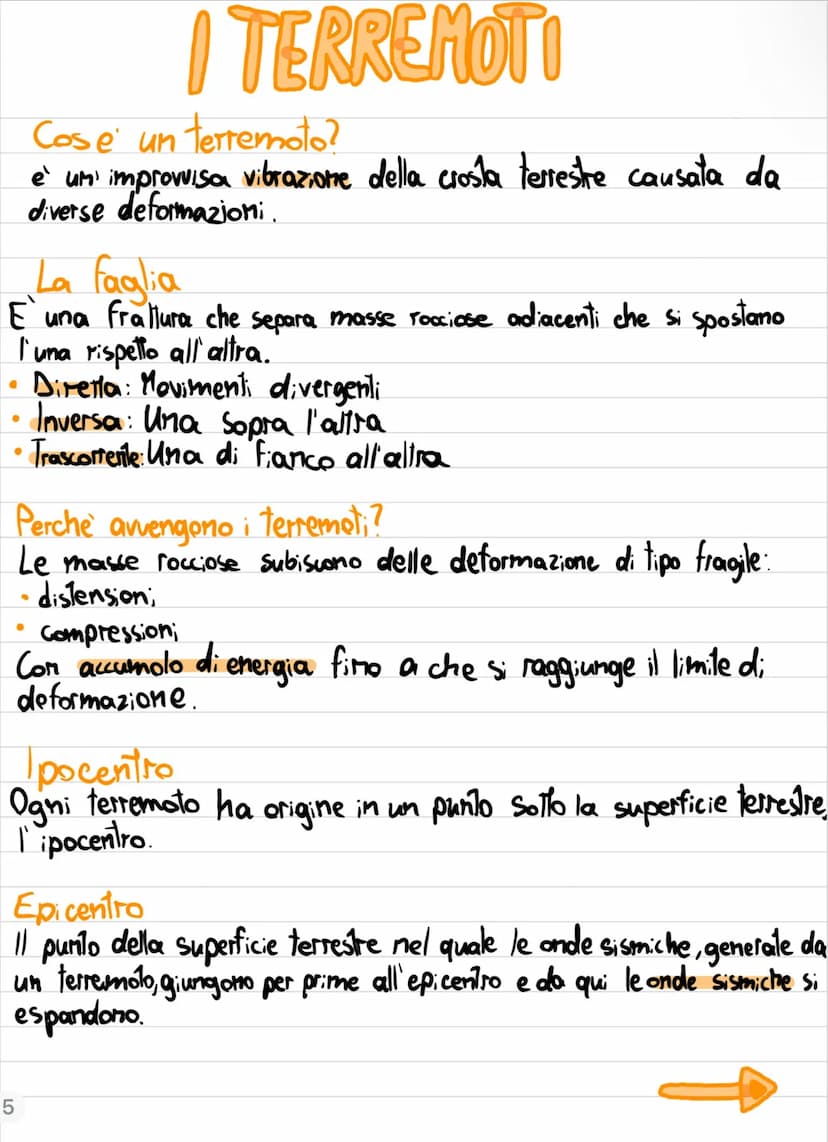 I TERREMOTI
Cos e' un terremoto?
e' un' improvvisa vibrazione della crosta terrestre causata da
diverse deformazioni.
La faglia
E' una frattura che separa masse rocciose adiacenti che si spostano
l'una rispetto all'altra.
• Diretta: Movimenti divergenti
• Inversa: Una sopra l'altra
• Trascorrente: Una di fianco all'altra
Perchè avvengono i terremoti?
Le masse rocciose subiscono delle deformazione di tipo fragile:
• distensioni;
• compressioni;
Con accumolo di energia fino a che si raggiunge il limite di
deformazione.
Ipocentro
Ogni terremoto ha origine in un punto sotto la superficie terrestre,
l'ipocentro.
Epicentro
Il punto della superficie terrestre nel quale le onde sismiche, generate da
un terremoto, giungono per prime all'epicentro e da qui le onde sismiche si
espandono.
5